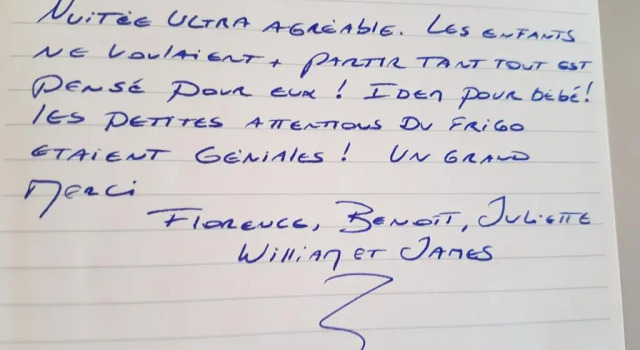 NUITÉE ULTRA AGRÉABLE. LES ENFANTS
NE VOULAIENT + PARTIR TANT TOUT EST
PENSÉ POUR EUX ! IDEM POUR BÉBÉ !
LES PETITES ATTENTIONS DU FRIGO
ETAIENT GÉNIALES ! UN GRAND
MERCI
FLORENCE, BENOÎT, JULIETTE
WILLIAM ET JAMES